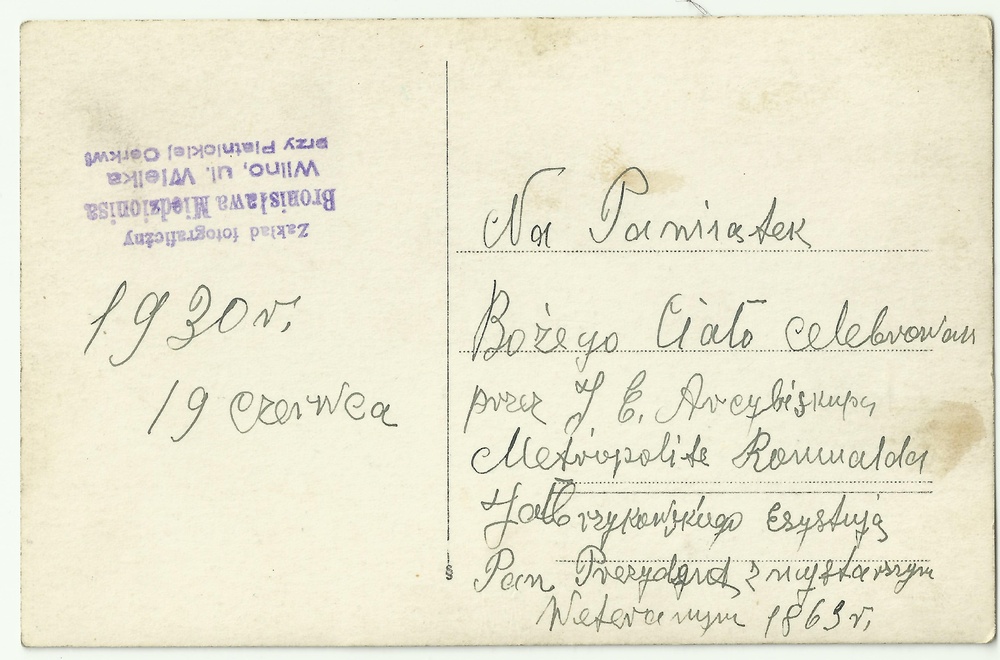 Zakład fotograficzny
Bronisława Miedzionisa
Wilno, ul. Wielka
przy Piatnickiej Cerkwi
1930 r.
19 czerwca
Na Pamiątek
Bożego Ciało celebrowan
przez J E. Arcybiskupa
Metropolite Romualda
Jałbrzykowskiego
Pan Prezydent z najstarszym
Weteranym 1863 r.
S